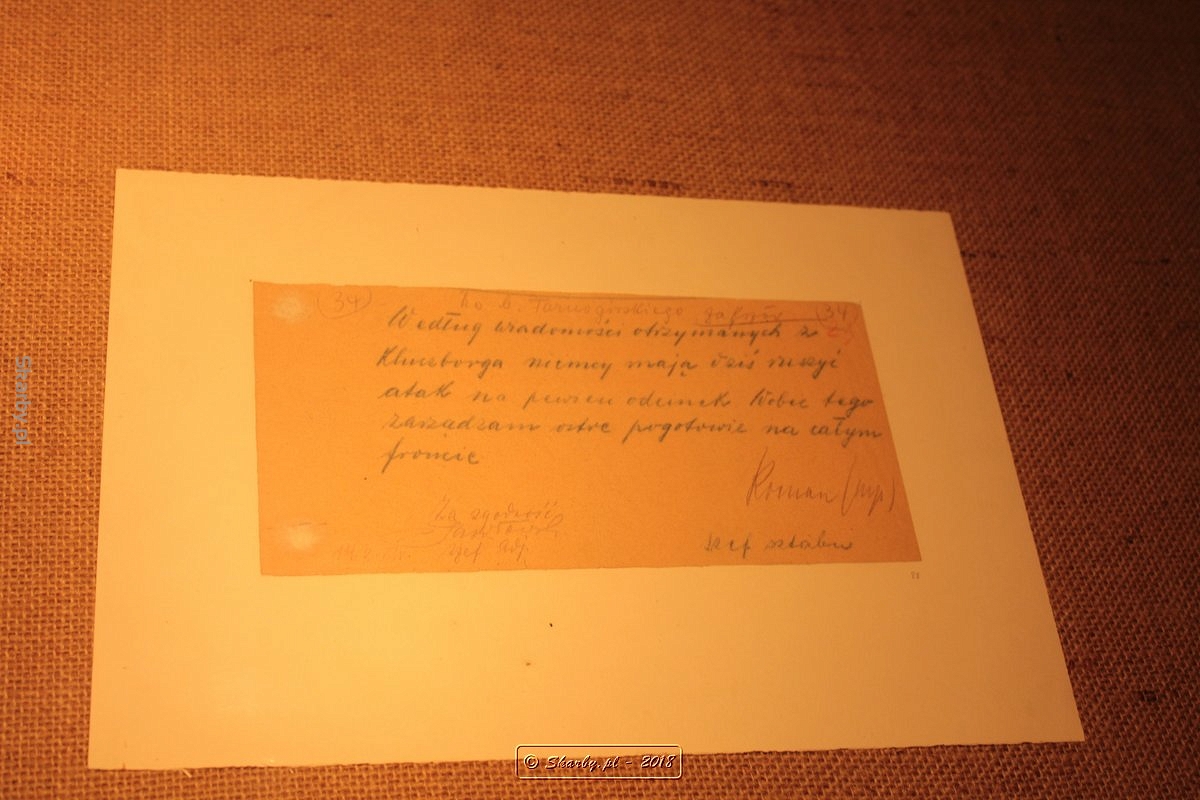 (34)
Do b. Tarnogórskiego (34)
Według wiadomości otrzymanych z
Kluczborga niemcy mają dziś ruszyć
atak na pewien odcinek Wobec tego
zarządzam ostre pogotowie na całym
froncie
Roman (mp)
Za zgodność
szef adj.
szef sztabu
Skarby.pl
© Skarby.pl - 2018